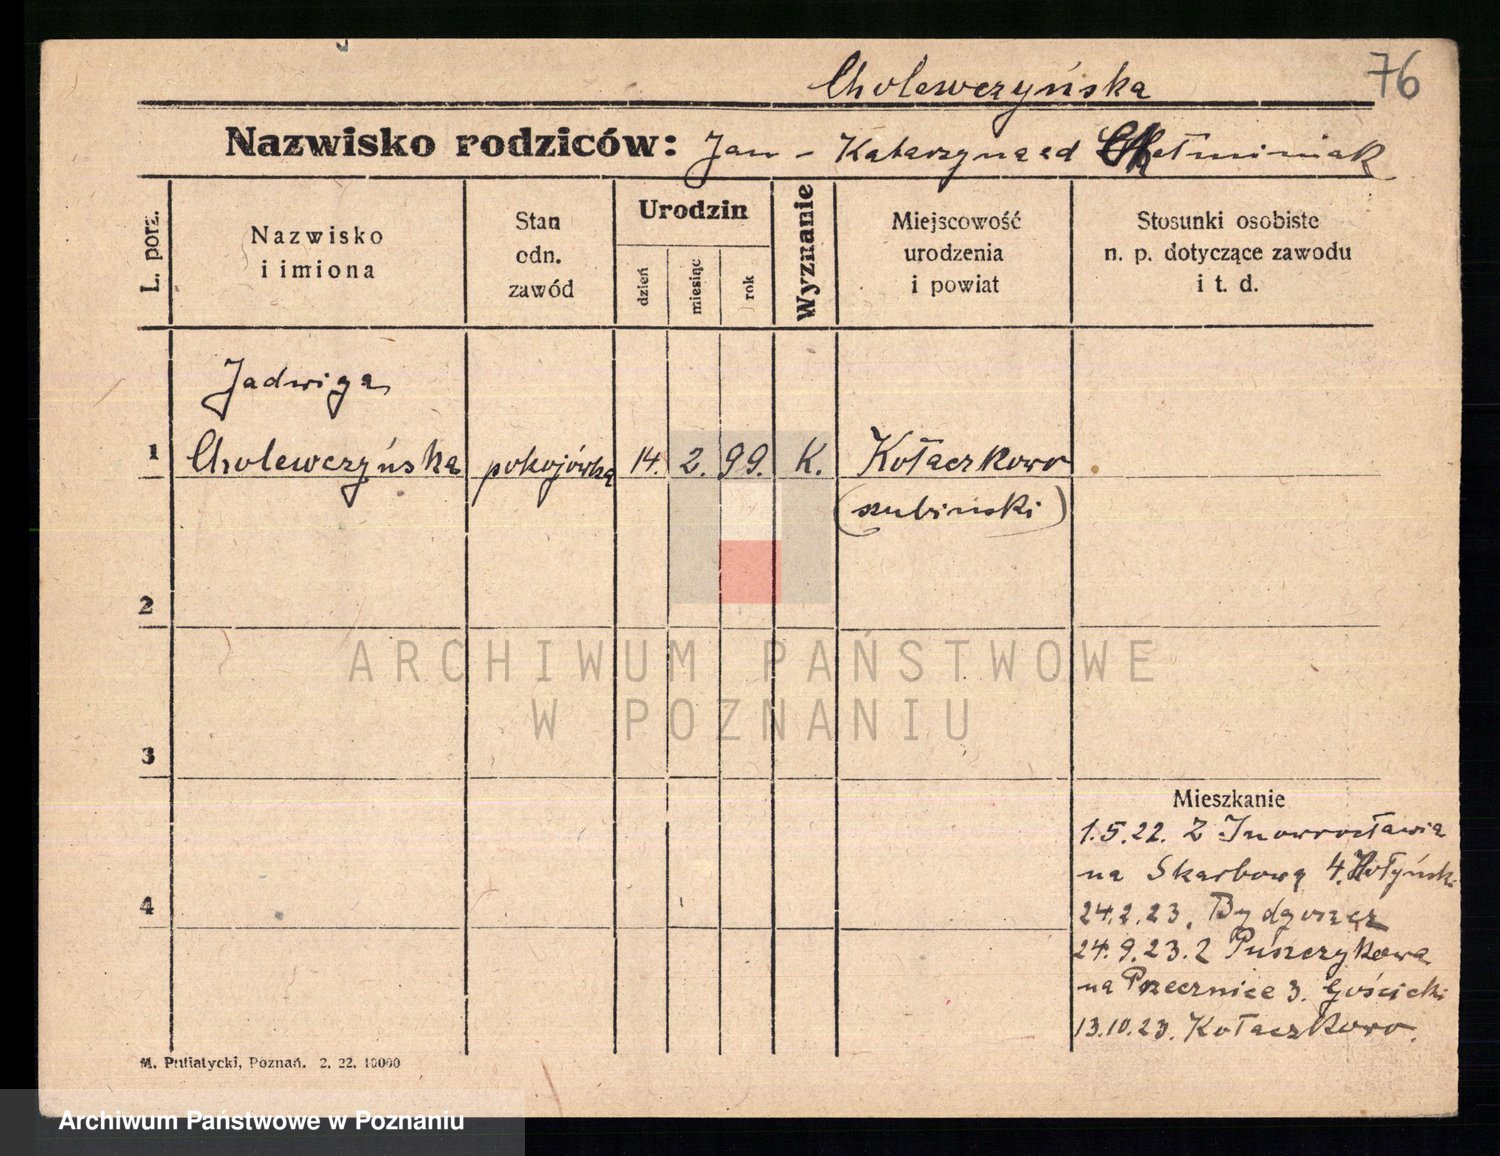 76
Cholewczyńska
Nazwisko rodziców: Jan - Katarzyna ed Chełminiak
L. porz.
Nazwisko
i imiona
Stan
odn.
zawód
Urodzin
dzień
miesiąc
rok
Wyznanie
Miejscowość
urodzenia
i powiat
Stosunki osobiste
n. p. dotyczące zawodu
i t. d.
Jadwiga
1 Cholewczyńska pokojówka 14. 2. 99. K. Kołaczkowo
(szubiński)
2
ARCHIWUM PAŃSTWOWE
W POZNANIU
3
Mieszkanie
1.5.22. Z Inowrocławia
na Skarbową 4. Hołyński
4
24.2.23. Bydgoszcz
24.9.23. Z Puszczykowa
na Przecznice 3. Gościcki
13.10.23. Kołaczkowo.
M. Putiatycki, Poznań. 2. 22. 10000
Archiwum Państwowe w Poznaniu